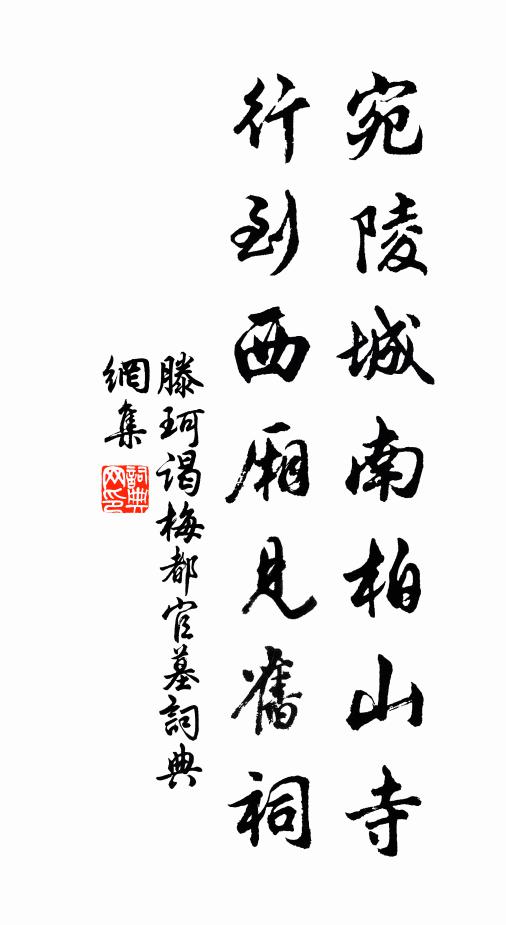 宛陵城南柏山寺
行到西厢見舊祠
滕珂谒梅都官墓詞典
網集
詞典
网印